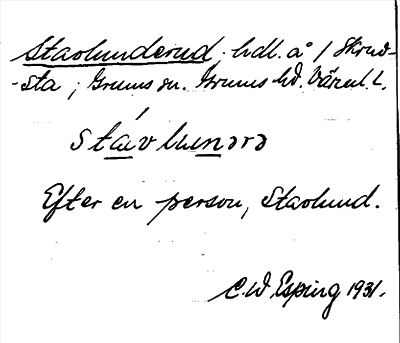 Stavlunderud, hdl. å 1 Skruv-
-sta; Grums sn. Grums hd. Värml. L.
stávlunərə
Efter en person, Stavlund.
C. W. Esping 1931.